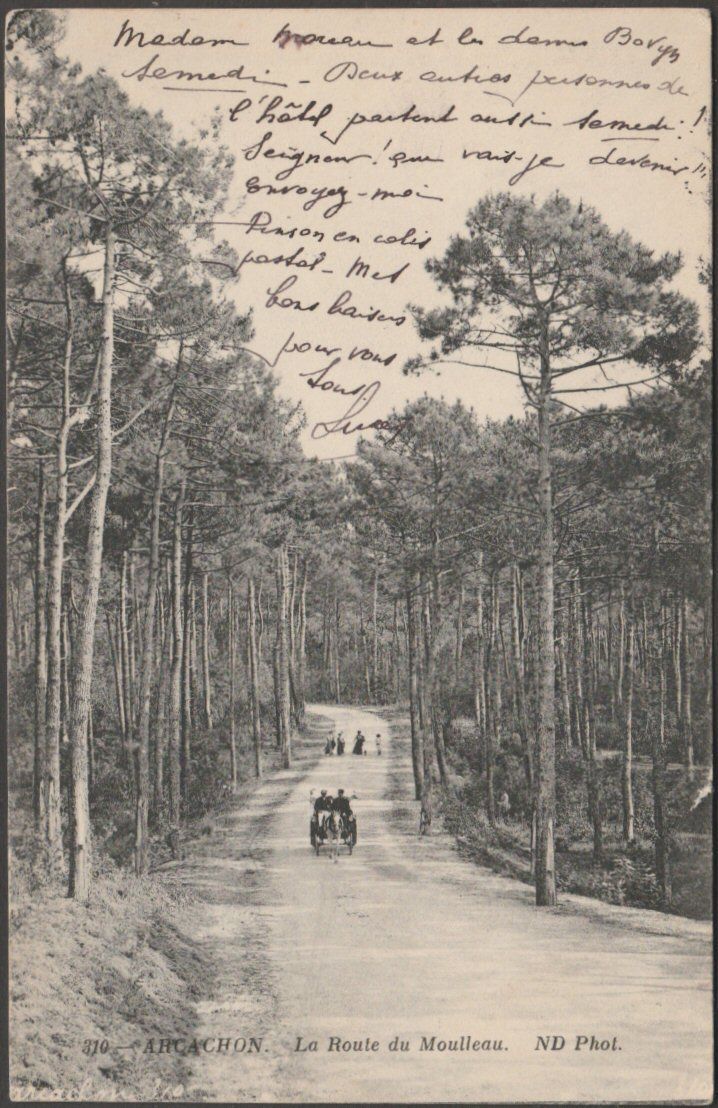 Madam Moreau et les dames Bovys
Samedi - Deux autres personnes de
l'hôtel partent aussi samedi!
Seigneur! que vais-je devenir!!!
Envoyez-moi
Pinson en colis
postal - Mes
bons baisers
pour vous
tous
310 - ARCACHON. La Route du Moulleau. ND Phot.